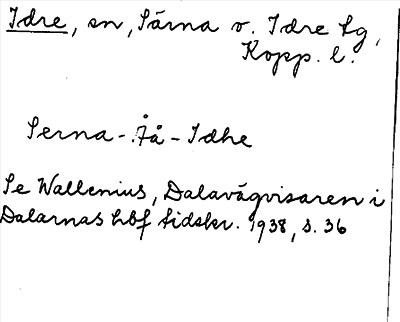 Idre, sn, Särna o. Idre tg,
Kopp. l.
Serna - Åå - Idhe
Se Wallenius, Dalavägvisaren i
Dalarnas hbf tidskr. 1938, s. 36